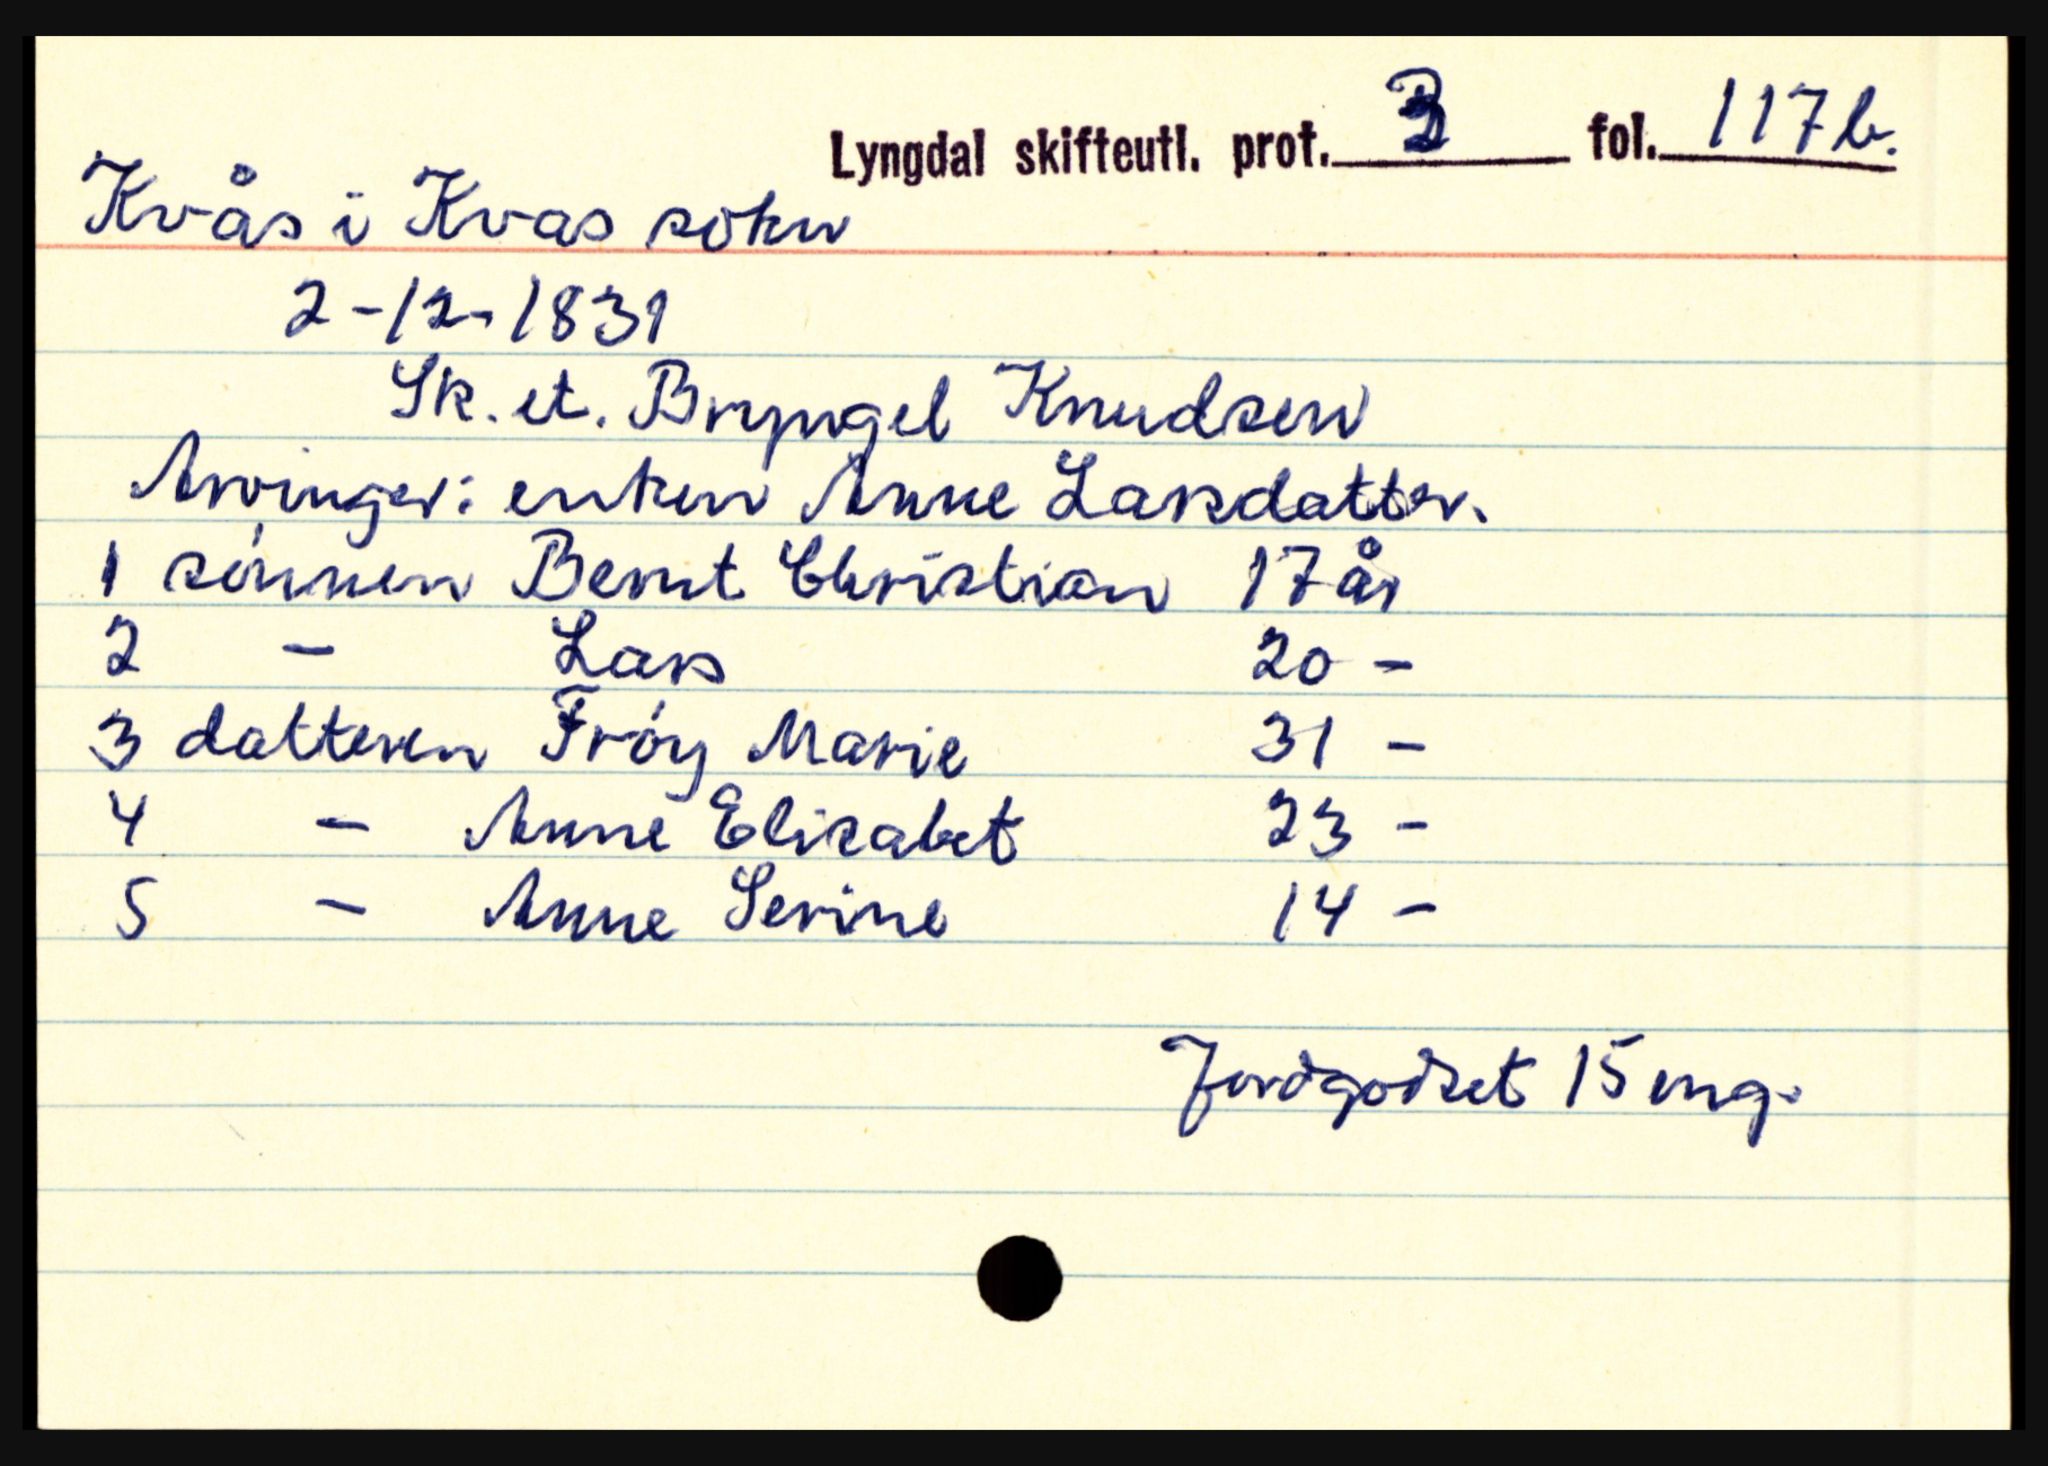 Lyngdal skifteutl. prot. 3 fol. 117 b.
Kvås i Kvas sokn
2-12-1831
Sk. et. Bryngel Knudsen
Arvinger: enken Anne Larsdatter.
1 sónnen Bernt Christian 17 år
2 - Lars 20 -
3 datteren Fróy Marie 31 -
4 - Anne Elisabet 23 -
5 - Anne Serine 14 -
Jordgodset 15 eng.